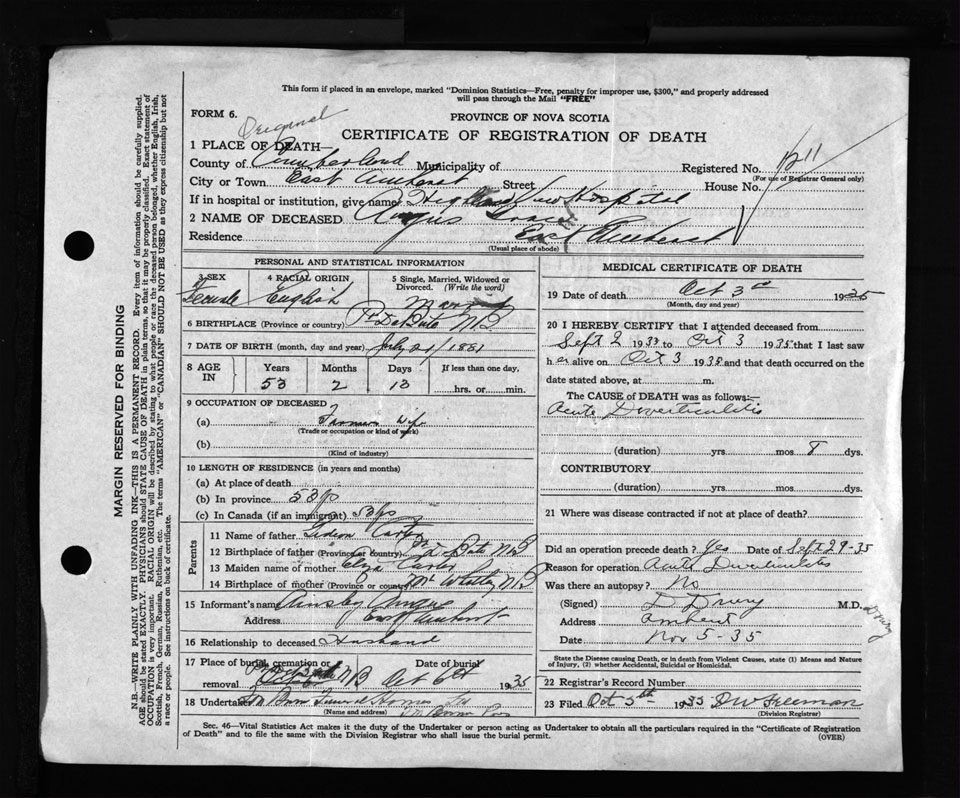 This form if placed in an envelope, marked "Dominion Statistics—Free, penalty for improper use, $300," and properly addressed
will pass through the Mail "FREE"
FORM 6.
PROVINCE OF NOVA SCOTIA
Original
CERTIFICATE OF REGISTRATION OF DEATH
1 PLACE OF DEATH—
County of Cumberland Municipality of Registered No. 1211
(For use of Registrar General only)
City or Town East Amherst Street House No.
If in hospital or institution, give name Highland View Hospital
2 NAME OF DECEASED Angus Grace
Residence East Amherst
(Usual place of abode)
PERSONAL AND STATISTICAL INFORMATION
3 SEX 4 RACIAL ORIGIN 5 Single, Married, Widowed or Divorced. (Write the word)
Female English Married
6 BIRTHPLACE (Province or country) Pt DeBute NB
7 DATE OF BIRTH (month, day and year) July 21/1881
8 AGE IN Years Months Days If less than one day.
53 2 13 hrs. or min.
9 OCCUPATION OF DECEASED
(a) Farmers Wife
(Trade or occupation or kind of work)
(b)
(Kind of industry)
10 LENGTH OF RESIDENCE (in years and months)
(a) At place of death
(b) In province 53 yrs
(c) In Canada (if an immigrant) 53 yrs
Parents
11 Name of father Gideon
12 Birthplace of father (Province or country) Pt. Bute NB
13 Maiden name of mother Eliza Carter
14 Birthplace of mother (Province or country) Mt Whatley NB
15 Informant's name Ainsley Angus
Address East Amherst
16 Relationship to deceased Husband
17 Place of burial, cremation or removal NB Date of burial Oct 6th 1935
18 Undertaker Funeral Home
(Name and address)
MEDICAL CERTIFICATE OF DEATH
19 Date of death Oct 3rd 1935
(Month, day and year)
20 I HEREBY CERTIFY that I attended deceased from
Sept 2 1933 to Oct 3 1935 that I last saw
her alive on Oct 3 1935 and that death occurred on the
date stated above, at m.
The CAUSE OF DEATH was as follows:—
Acute Diverticulitis
(duration) yrs mos 8 dys.
CONTRIBUTORY
(duration) yrs. mos. dys.
21 Where was disease contracted if not at place of death?
Did an operation precede death? Yes Date of Sept 29-35
Reason for operation Acute Diverticulitis
Was there an autopsy? No
(Signed) D Drury M.D.
Drury
Address Amherst
Date Nov 5-35
State the Disease causing Death, or in death from Violent Causes, state (1) Means and Nature
of Injury, (2) whether Accidental, Suicidal or Homicidal.
22 Registrar's Record Number
23 Filed Oct 5th 1935 DW Freeman
(Division Registrar)
Sec. 46—Vital Statistics Act makes it the duty of the Undertaker or person acting as Undertaker to obtain all the particulars required in the "Certificate of Registration
of Death" and to file the same with the Division Registrar who shall issue the burial permit.
(OVER)
MARGIN RESERVED FOR BINDING
N.B.—WRITE PLAINLY WITH UNFADING INK—THIS IS A PERMANENT RECORD. Every item of information should be carefully supplied.
AGE should be stated EXACTLY. PHYSICIANS should STATE CAUSE OF DEATH in plain terms, so that it may be properly classified. Exact statement of
OCCUPATION is very important. RACIAL ORIGIN will be described by stating to what people or race the deceased person belonged, whether English, Irish,
Scottish, French, German, Russian, Ruthenian, etc. The terms "AMERICAN" or "CANADIAN" SHOULD NOT BE USED as they express citizenship but not
a race or people. See instructions on back of certificate.